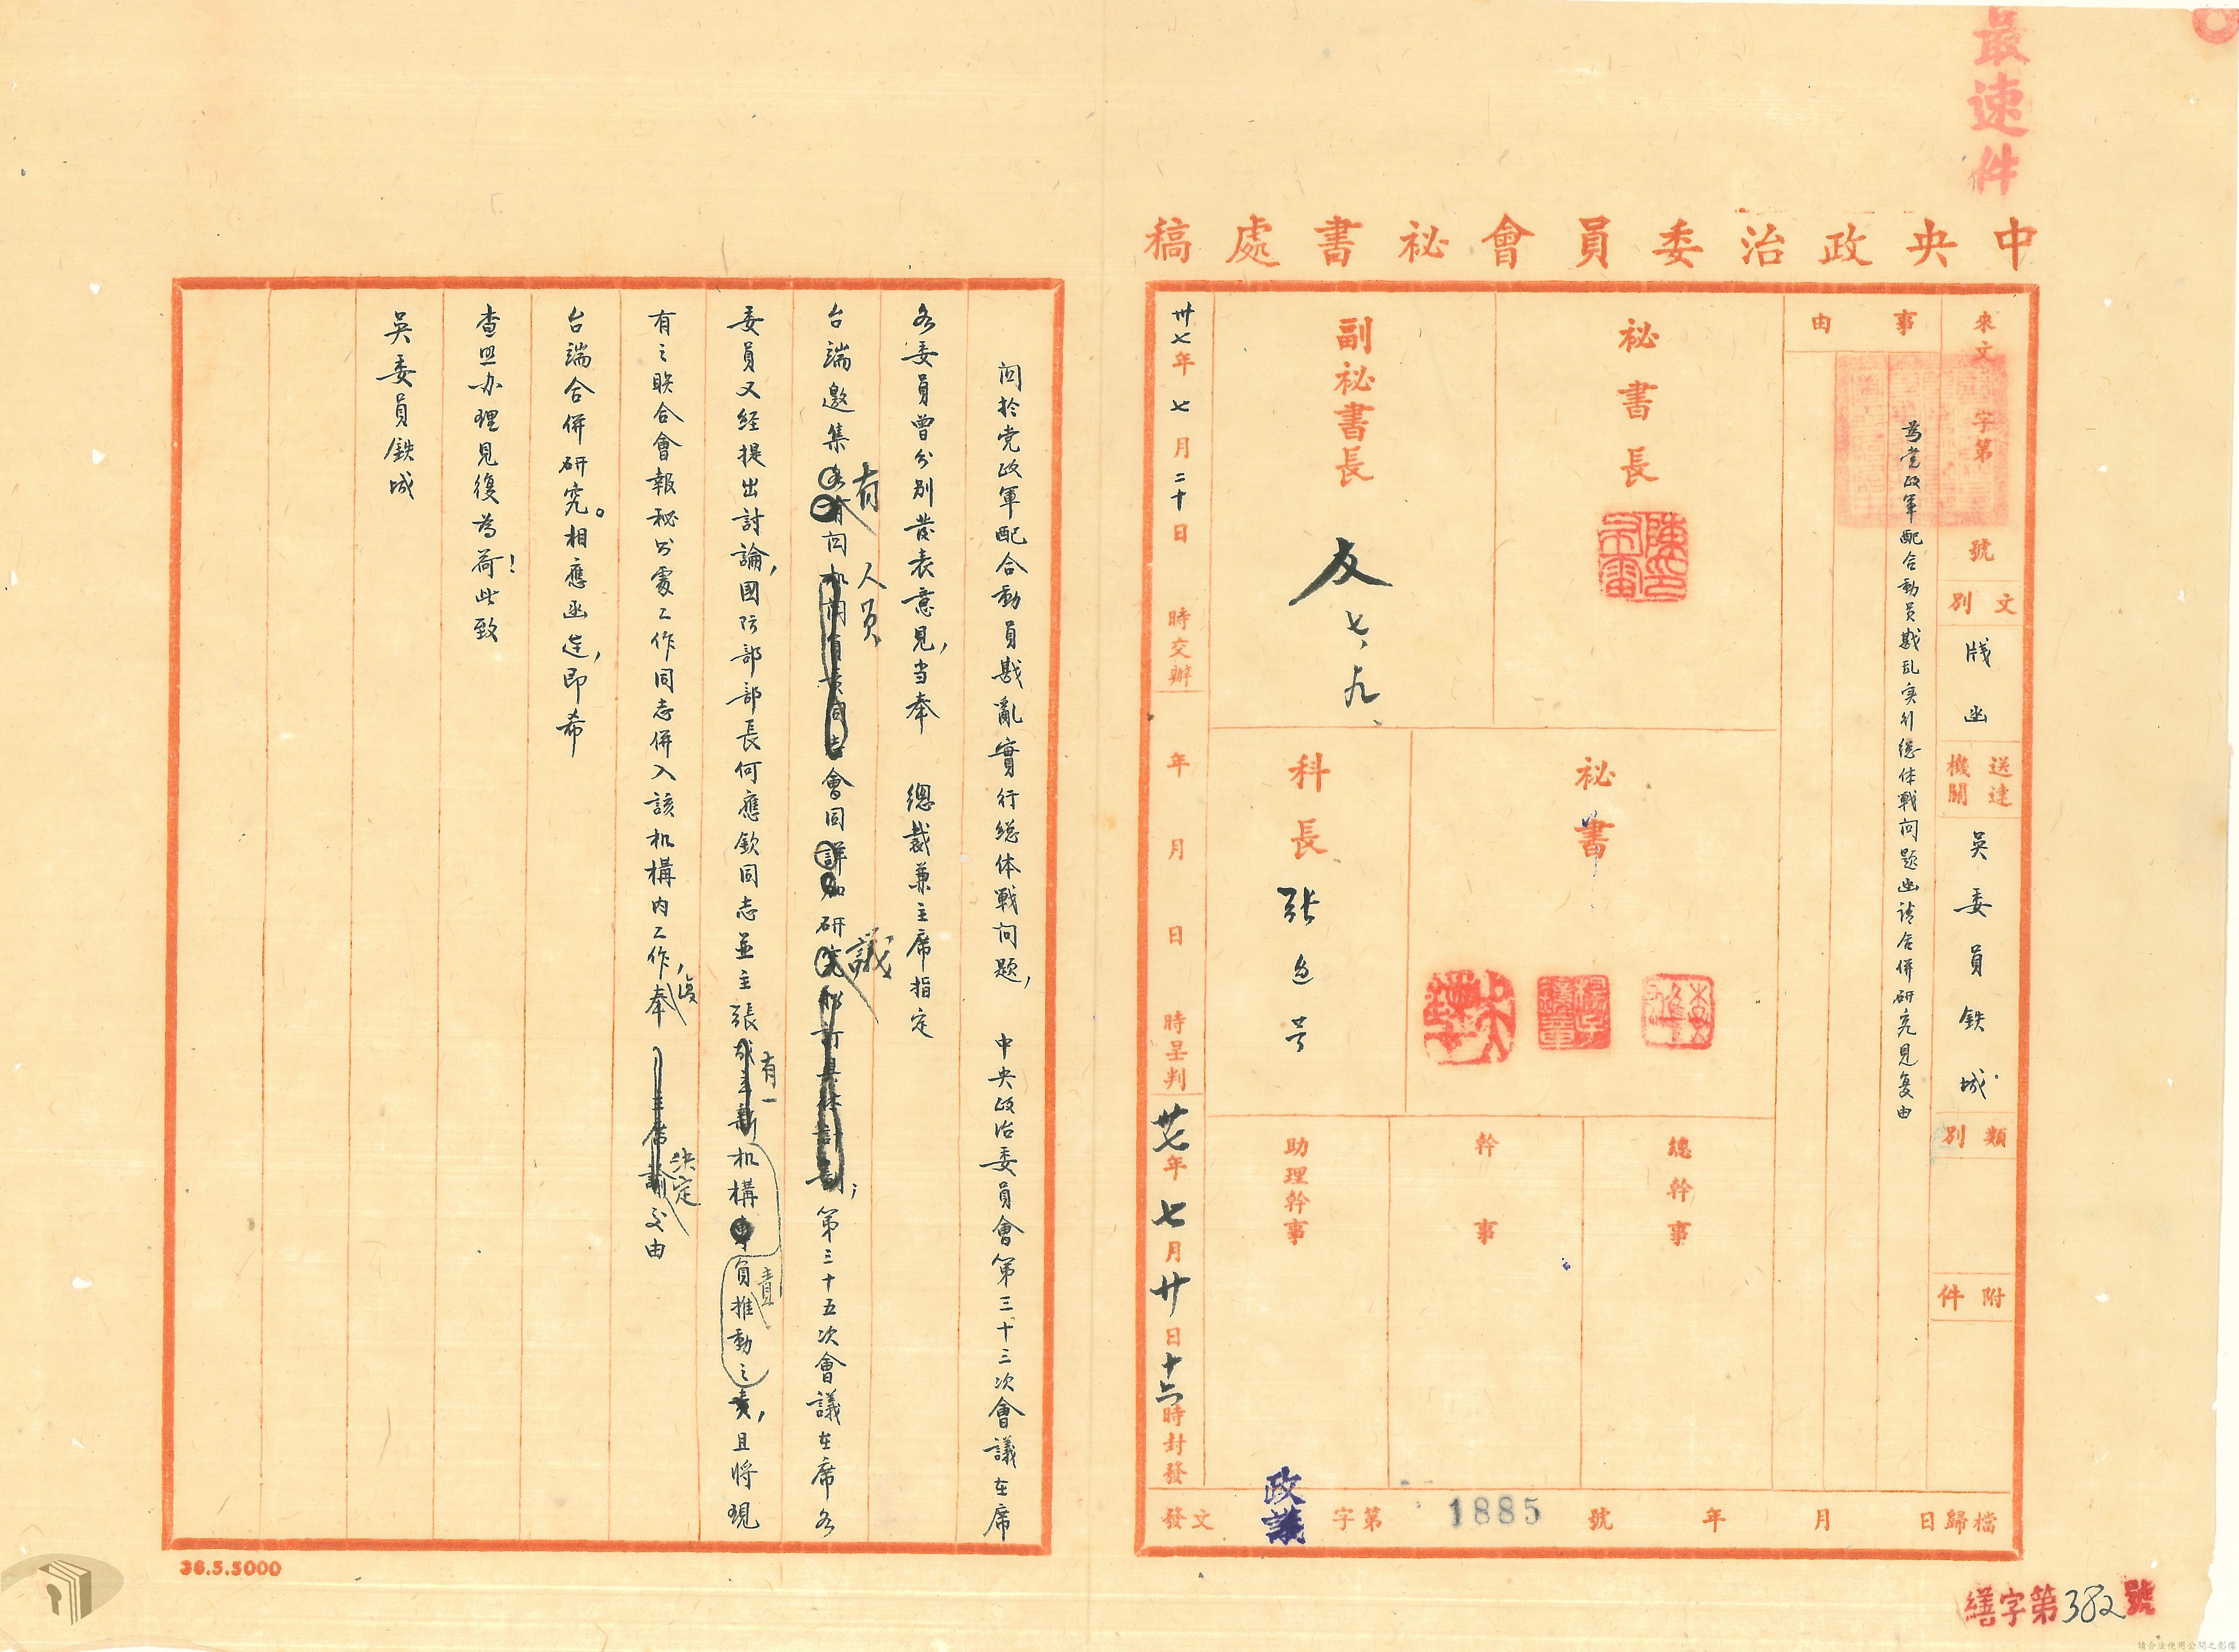 最速件
中央政治委員會祕書處稿
來文 字第 號
文別 牋函
送達機關 吳委員鉄城
類別
附件
事由
為党政軍配合動員戡乱实行總体戰问題函请合併研究見复由
祕書長
副祕書長 友 七、九、
祕書
科長 張
總幹事
幹事
助理幹事
卅七年七月二十日 時交辦
年 月 日 時呈判
卅七年七月廿日十六時封發
發文 政議 字第 1885 號 年 月 日歸檔
繕字第382號
関於党政軍配合動員戡亂實行總体戰问題，中央政治委員會第三十三次會議在席
各委員曾分別發表意見，当奉 總裁兼主席指定
台端邀集有関人員會同研議；第三十五次會議在席各
委員又経提出討論，國防部部長何應欽同志並主張有一机構負責推動之，且將現
有之联合會報秘书處工作同志併入該机構内工作，復奉 決定交由
台端合併研究。相應函達，即希
查照办理見復為荷！此致
吳委員鉄城
36.5.5000
請合法使用公開之影像